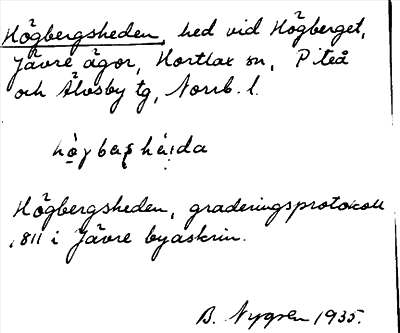 Högbergsheden, hed vid Högberget,
Jävre ägor, Hortlax sn, Piteå
och Älvsby tg, Norrb. l.
Högbergsheden, graderingsprotokoll
1811 i Jävre byaskrin.
B. Nygren 1935.